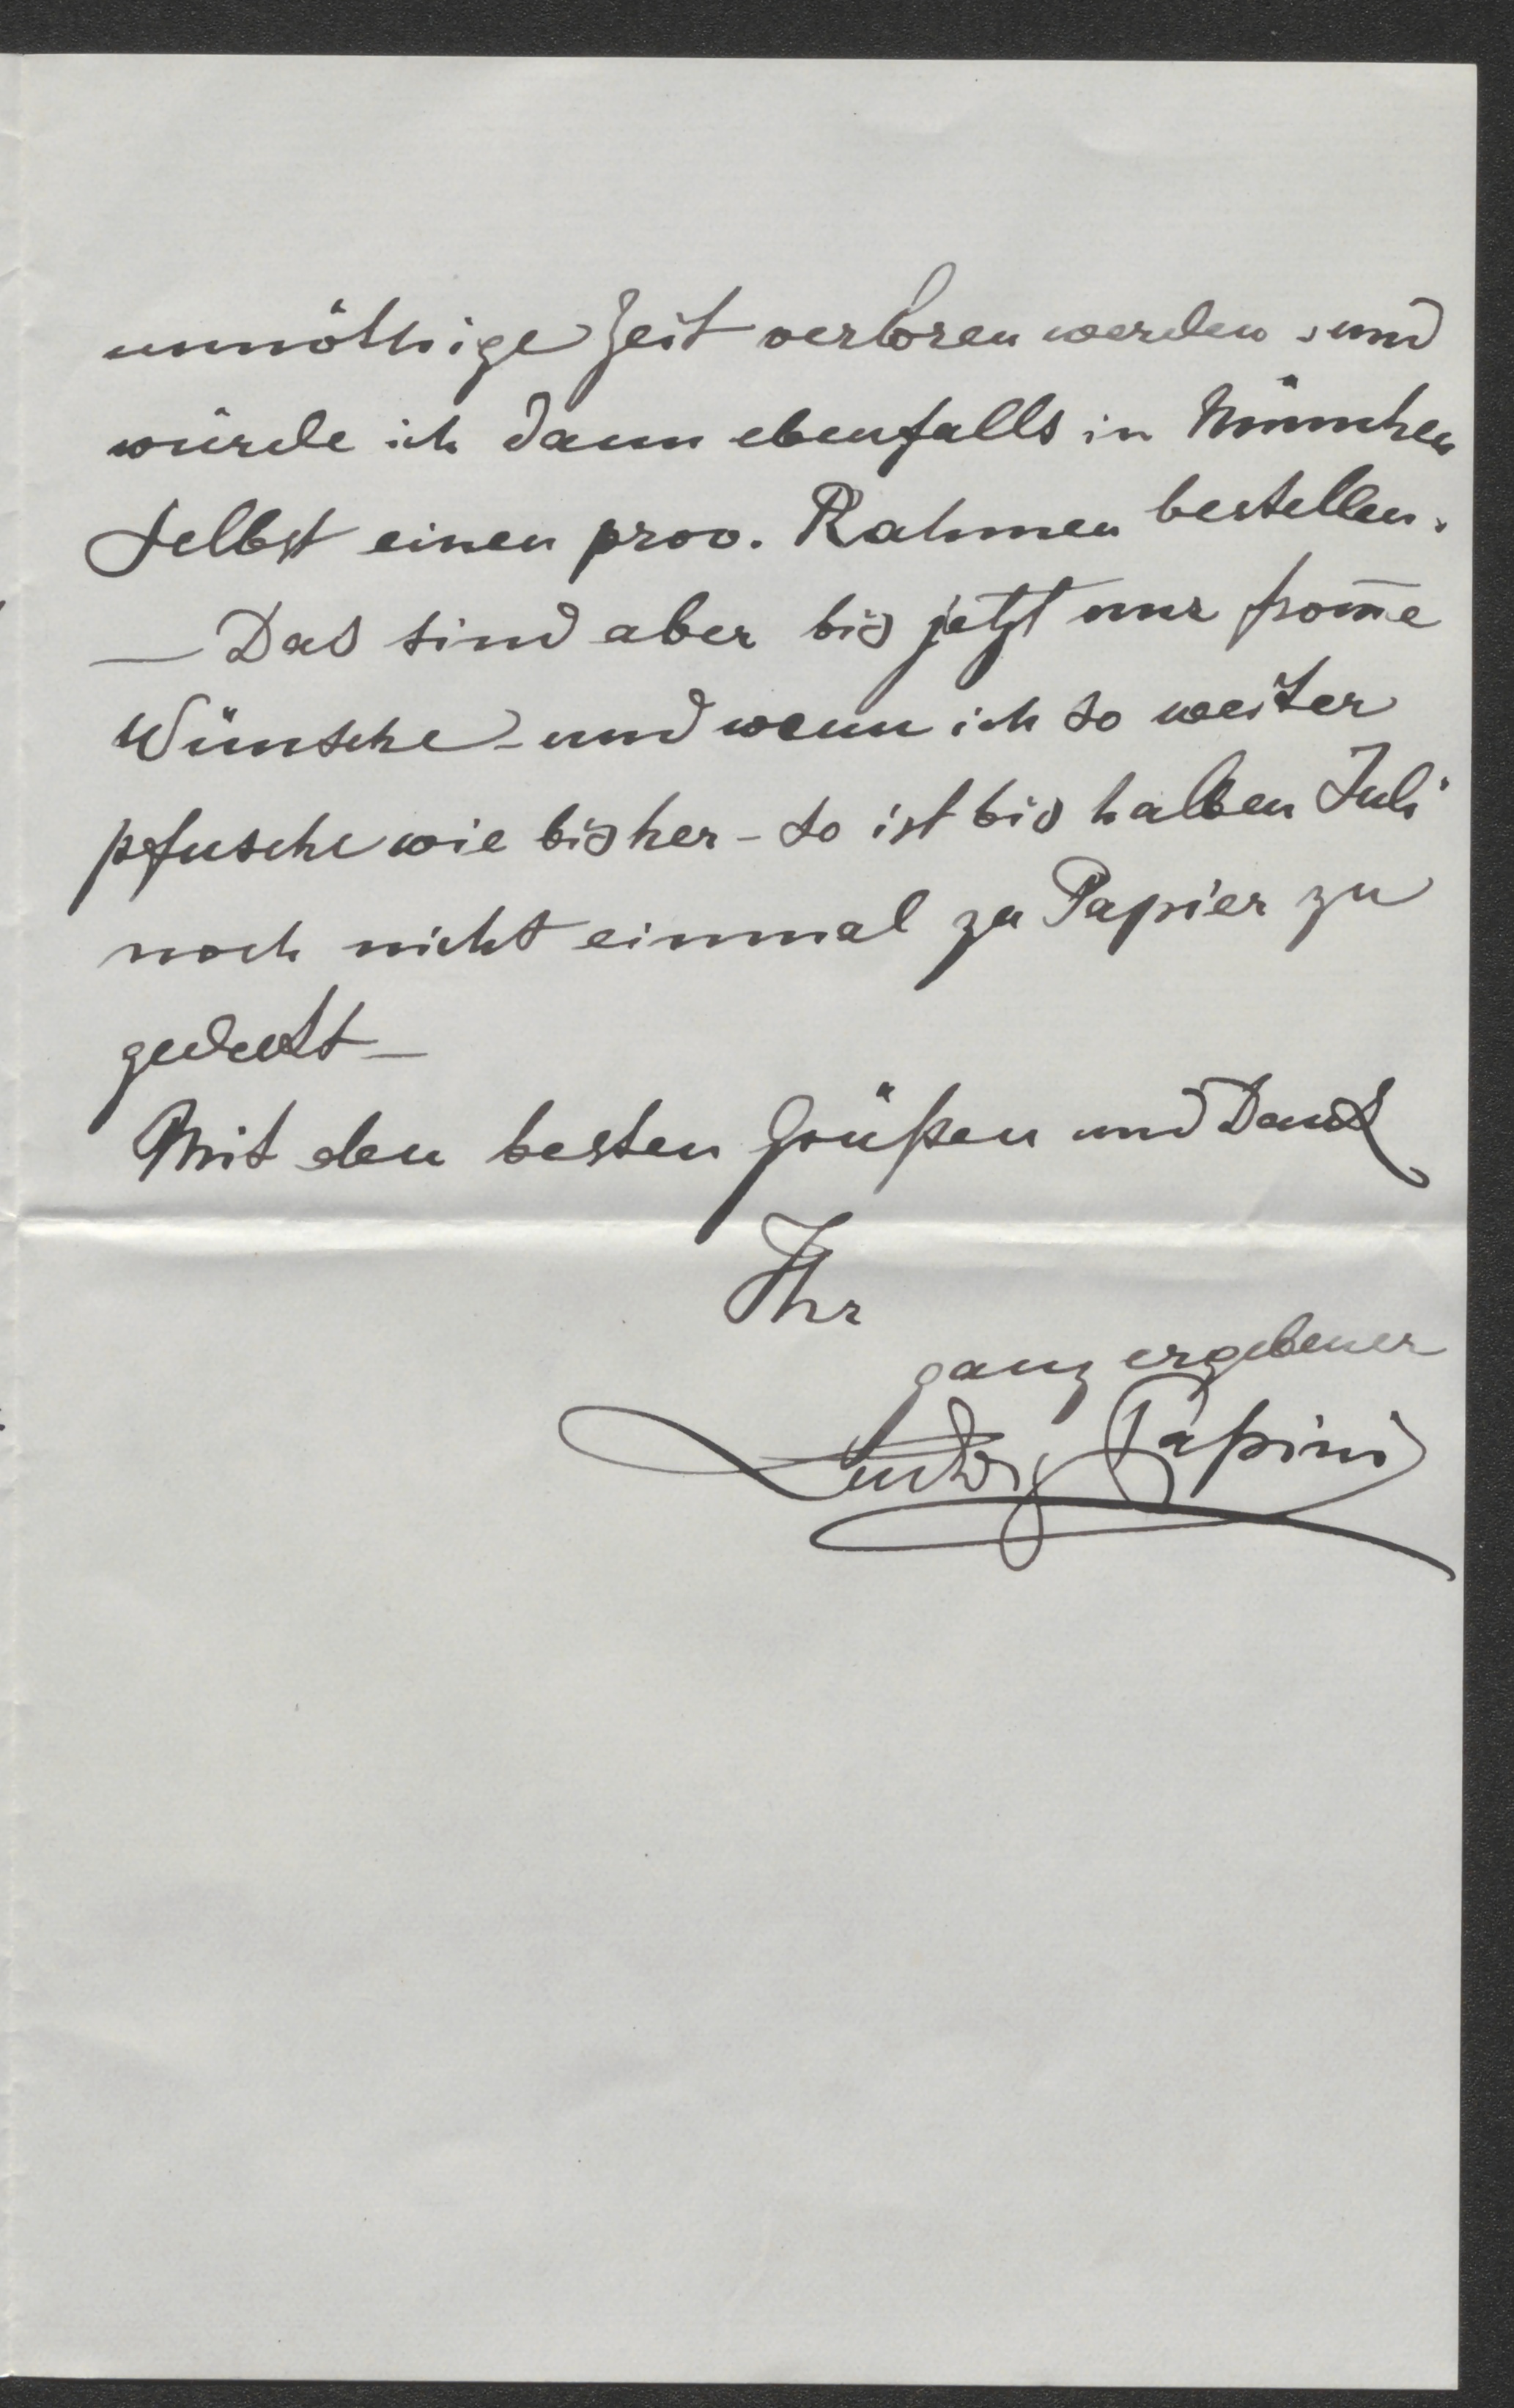 unnöthige Zeit verloren werden, und
würde ich dann ebenfalls in München
selbst einen prov. Rahmen bestellen.
— Das sind aber bis jetzt nur from̅e
Wünsche – und wenn ich so weiter
pfusche wie bisher – so ist bis halben Juli
noch nicht einmal ja Papier zu
gedeckt –
Mit den besten Grüßen und Dank
Ihr
ganz ergebener
Ludwig